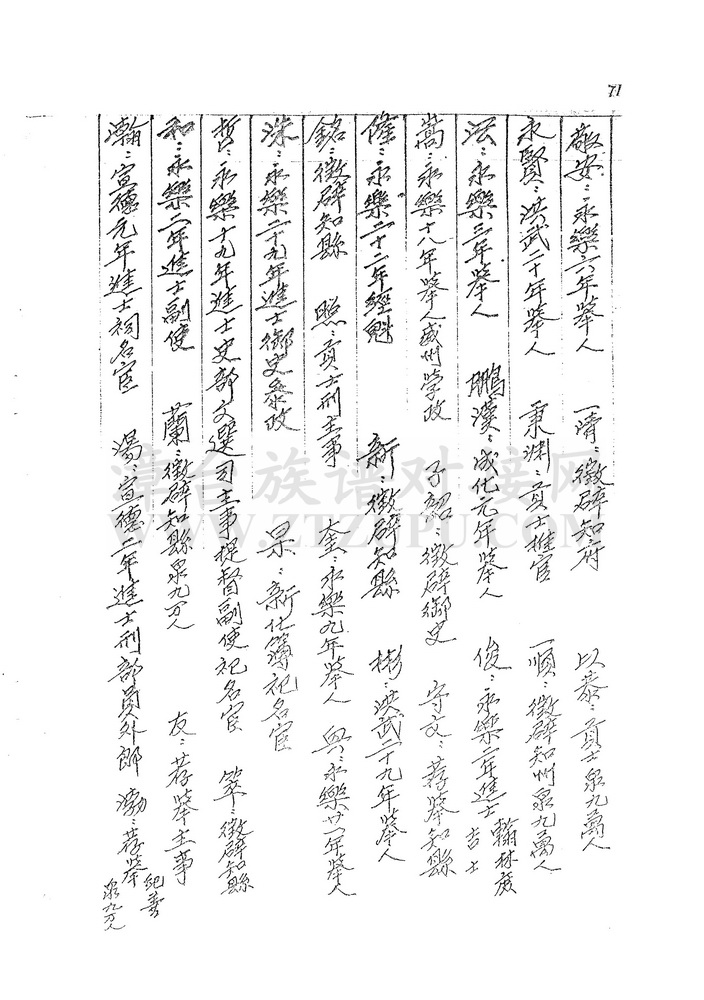 71
敬安：永樂六年舉人 一隋：徵辟知府 以泰：貢士泉九萬人
永賢：洪武二十年舉人 秉渊：貢士推官 一順：徵辟知州泉九萬人
法：永樂三年舉人 鵬漢：成化元年舉人 俊：永樂二年進士翰林庶吉士
嵩：永樂十八年舉人威州学政 子韶：徵辟御史 守文：荐舉知縣
偉：永樂二十二年經魁 新：徵辟知縣 彬：洪武二十九年舉人
銘：徵辟知縣 照：貢士刑主事 奎：永樂九年舉人 與：永樂廿一年舉人
洙：永樂二十九年進士御史參政 杲：新化簿祀名宦
哲：永樂十九年進士史部文選司主事提督副使祀名宦 萃：徵辟知縣
和：永樂二年進士副使 蘭：徵辟知縣泉九万人 友：荐舉主事
瀚：宣德元年進士祠名宦 湯：宣德二年進士刑部員外郎 渤：荐舉紀善泉九万人
漳台族谱对接网
WWW.ZTZUPU.COM